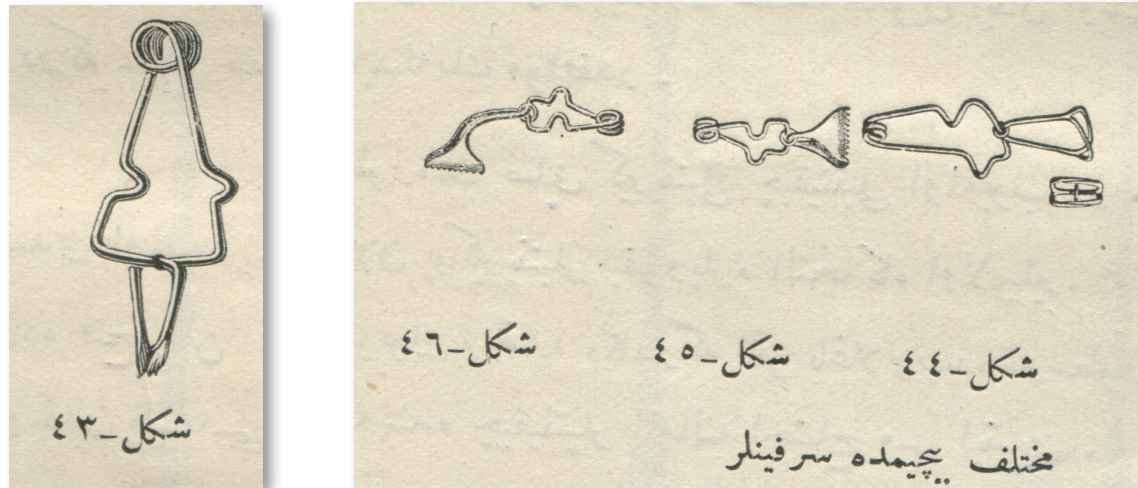 شكل-٤٣
شكل-٤٤
شكل-٤٥
شكل-٤٦
مختلف بيچيمده سرفينلر